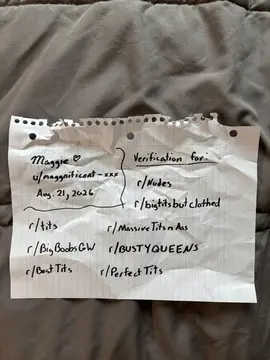 Maggie ♡
u/maggnificent-xxx
Aug. 21, 2026
Verification for:
r/Nodes
r/bigtits but clothed
r/tits
r/MassiveTitsnAss
r/BigBoobsGW
r/BUSTYQUEENS
r/BestTits
r/PerfectTits